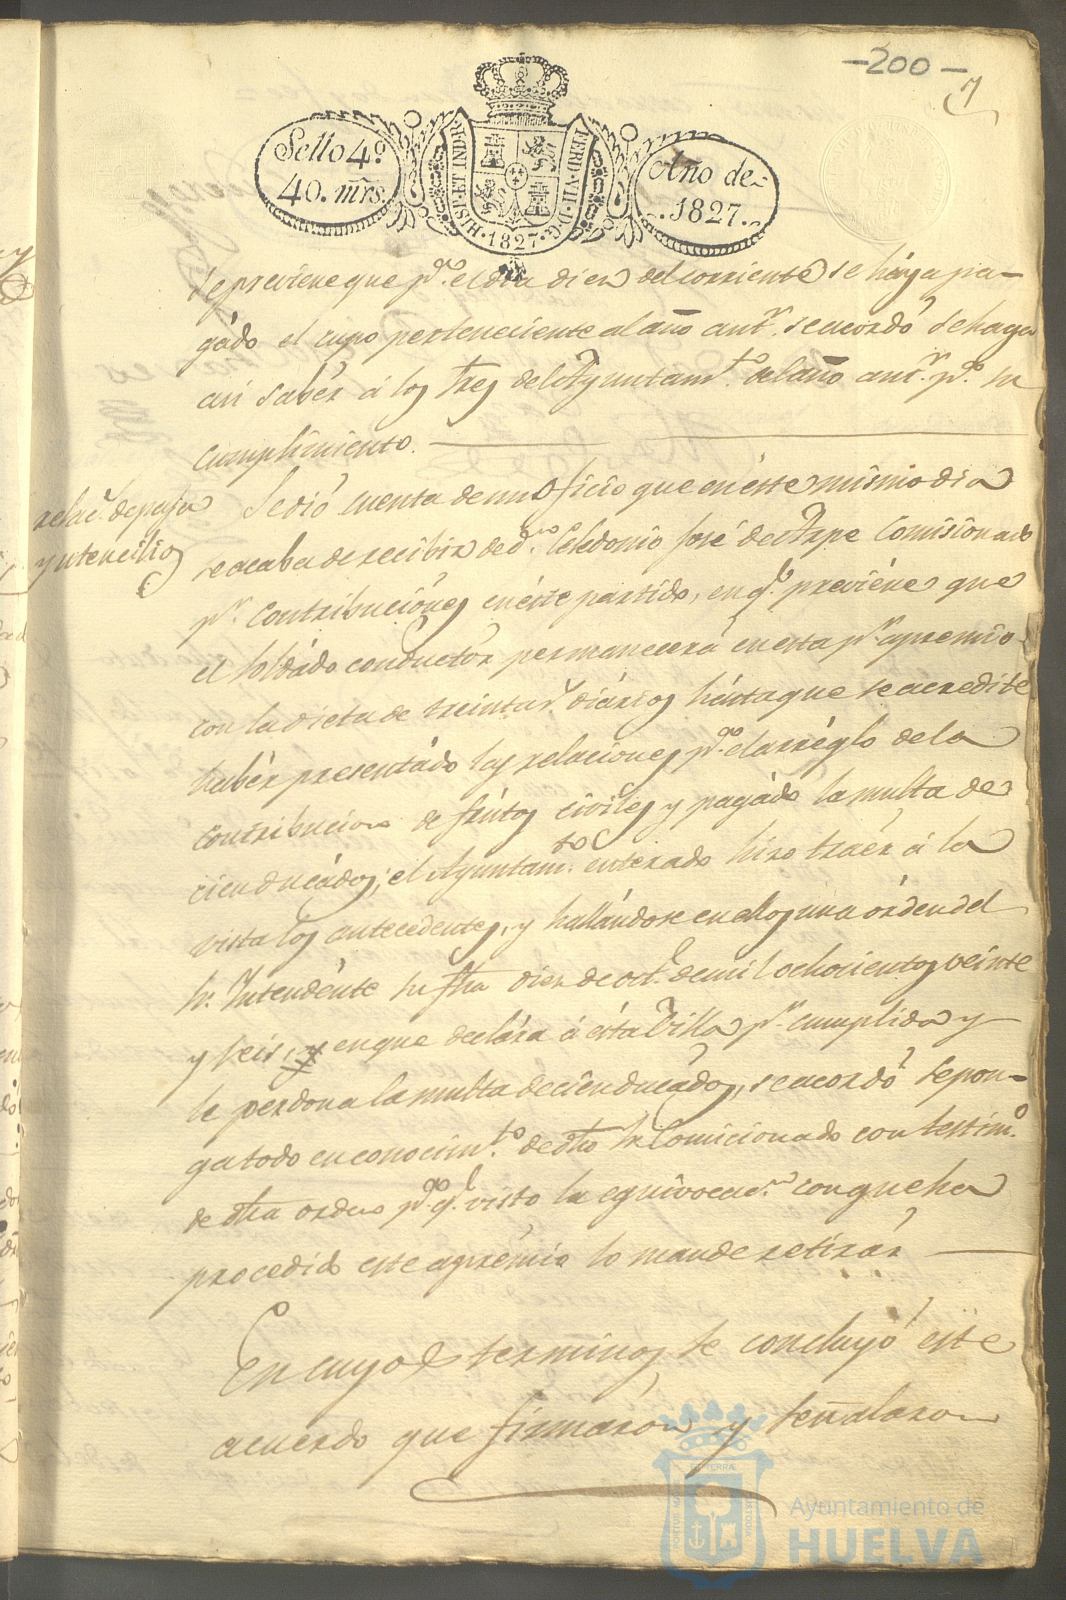 -200-
7
Sello 4º
40. mrs.
HISP. ET IND. R.
FERD. VII. D. G.
·1827·
Año de
1827.
se previene que pª. el dia diez del corriente se háya pa-
gádo el cupo perteneciente al año antr. se acordó se haga
asi sabér á los Sres del Ayuntamto. del año antr. pª. su
cumplimiento.
relacs. de paja
y utencilios
Se dió cuenta de un Oficio que en éste mismo dia
se acaba de recibir de dn. Celedonio José de Azpe Comisionado
pr. Contribuciónes en éste partido, en q. previéne que
el Soldádo conductór permanecerá en esta pr. apremio
con la dieta de treinta rs. diários hásta que se acredite
habér presentádo las relaciones pª. el arréglo de la
Contribucion de frútos civíles y pagádo la multa de
cien ducádos; el Ayuntamto. enterado hizo traér á la
vista los antecedentes, y hallándose en ellos una órden del
Sr. Intendénte su fha diez de oct. de mil ochocientos veinte
y seis, en que declára á ésta Villa pr. cumplida y
le perdona la multa de cien ducádos, se acordó se pon-
ga todo en conocimto. de dho Sr. Comicionado con testimo.
de dha orden pª. q. visto la equivocacn. con que ha
procedido este aprémio lo mande retirár
En cuyos terminos se concluyó éste
acuerdo que firmáron y señalaron
Ayuntamiento de
HUELVA